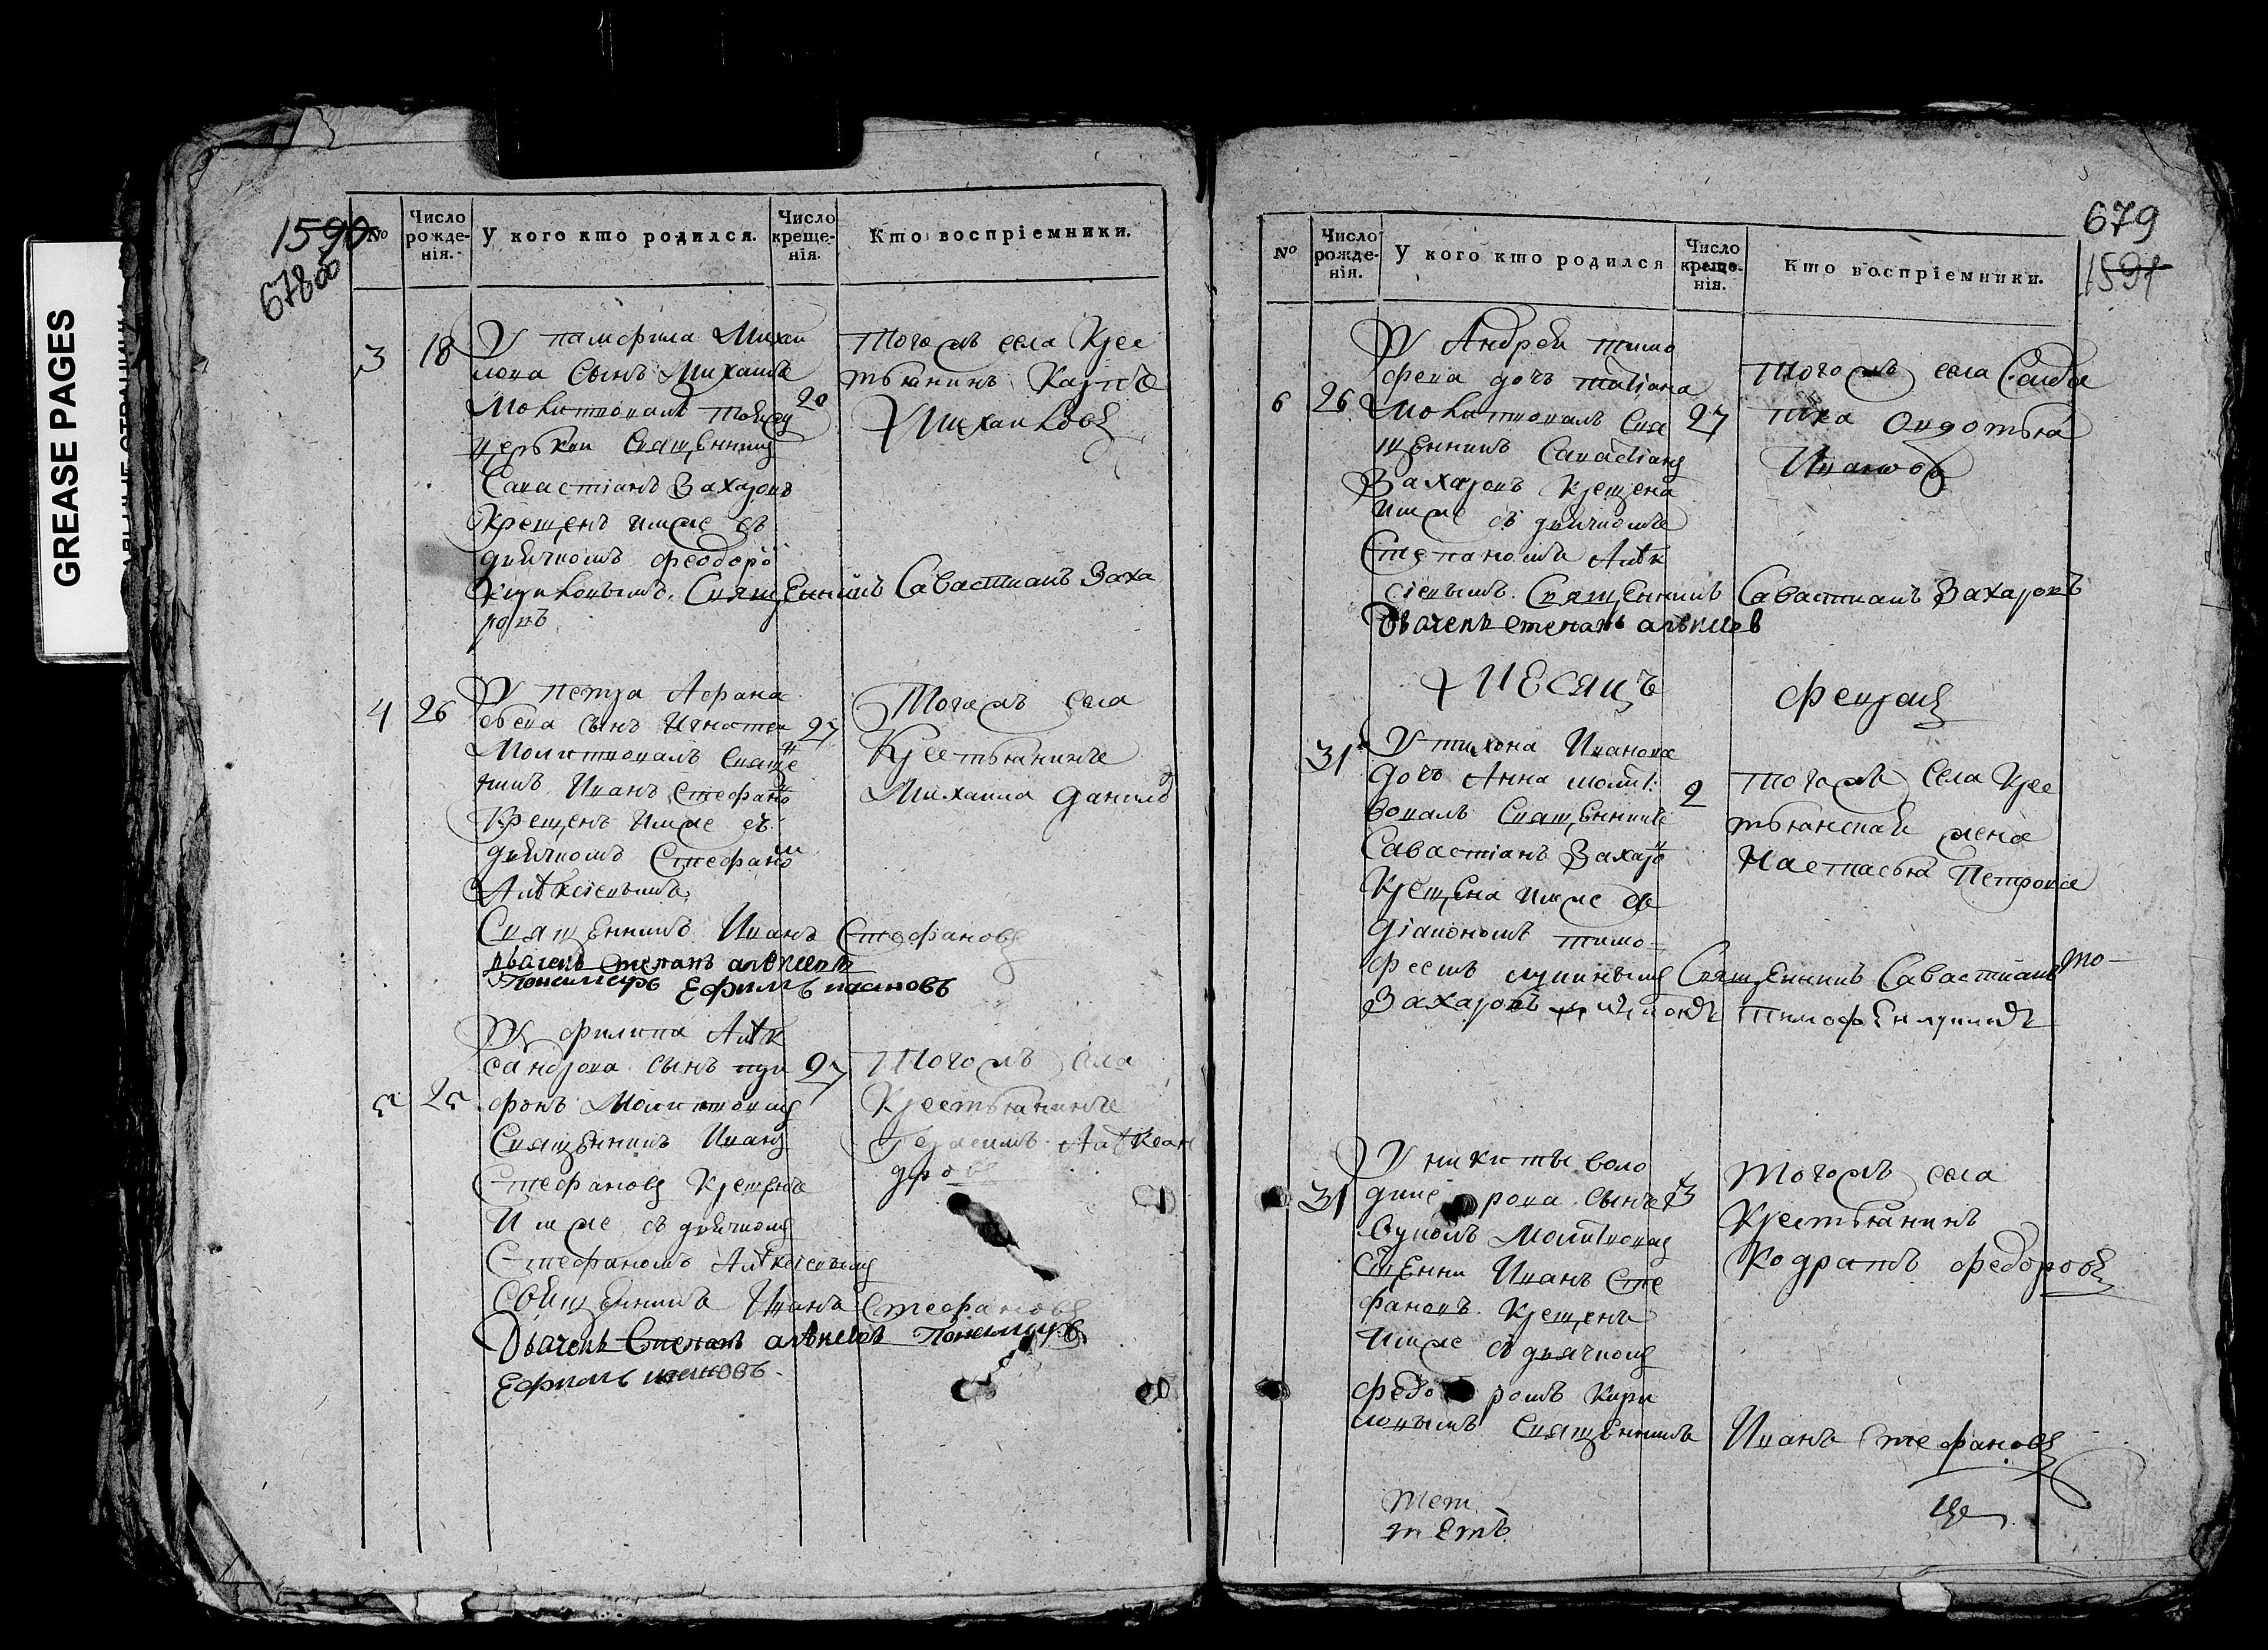 GREASE PAGES
1590
678об
№ Число рожде-нія. У кого кто родился. Число креще-нія. Кто воспріемники.
3 18 У памфила Михаи
лова Сынъ Михаилъ
Молитвовалъ тойжъ 20
церькви Священникъ
Савастіанъ Захаровъ
Крещенъ имже съ
дьячкомъ Феодоро
Кириловымъ. Священникъ Савастианъ Заха
ровъ
Тогожъ села Крес
тьянинъ Карпъ
Михаиловъ
4 26 У петра Афана
сьева сынъ Игнатеи 27
Молитвовалъ Свяще
никъ Иванъ Стефано
Крещенъ имже съ
дьячкомъ Стефано
Алѣксіевымъ
Священникъ Иванъ Стефановъ
дьячекъ степанъ алѣксеевъ
Пономарь Ефимъ ивановъ
Тогожъ села
Крестьянинъ
Михаила Данило
5 25 У филипа Алѣк
сандрова сынъ три 27
фонъ Молитвовалъ
Священникъ Иванъ
Стефановъ Крещенъ
Имже съ дьячкомъ
Стефаномъ Алѣксіевымъ
Священникъ Иванъ Стефановъ
Дьячекъ Степанъ алѣксеевъ Пономарь
Ефимъ ивановъ.
Тогожъ села
Крестьянинъ
Герасимъ Алѣксан
дровъ
679
1591
№ Число рожде-нія. У кого кто родился Число креще-нія. Кто воспріемники.
У Андрея тимо
феева дочь татіана
6 26 Молитвовалъ Свя 27
щенникъ Савастіанъ
Захаровъ Крещена
имже съ дьячкомъ
Степаномъ Алѣк
сіевымъ. Священникъ Савастианъ Захаровъ
Дьячекъ степанъ алѣксеев
Тогожъ села Солда
тка Авдотья
Иванова
Месяцъ февраль
31 У тихона Иванова
дочь Анна молит
вовалъ Священникъ 2
Савастіанъ Захаро
Крещена имже съ
діакономъ тимо-
феемъ лукинымъ Священникъ Савастианъ
Захаровъ
Тогожъ Села Крес
тьянская жена
Настасья Петрова
У никиты воло
31 диме рова сынъ 3
Вуколъ Молитвовалъ
Сщенни Иванъ Сте
фановъ Крещенъ
Имже съ дьячкомъ
Федо ромъ Кири
ловымъ Священникъ Иванъ Стефановъ
Тогожъ села
Крестьянинъ
Кодратъ Федоровъ